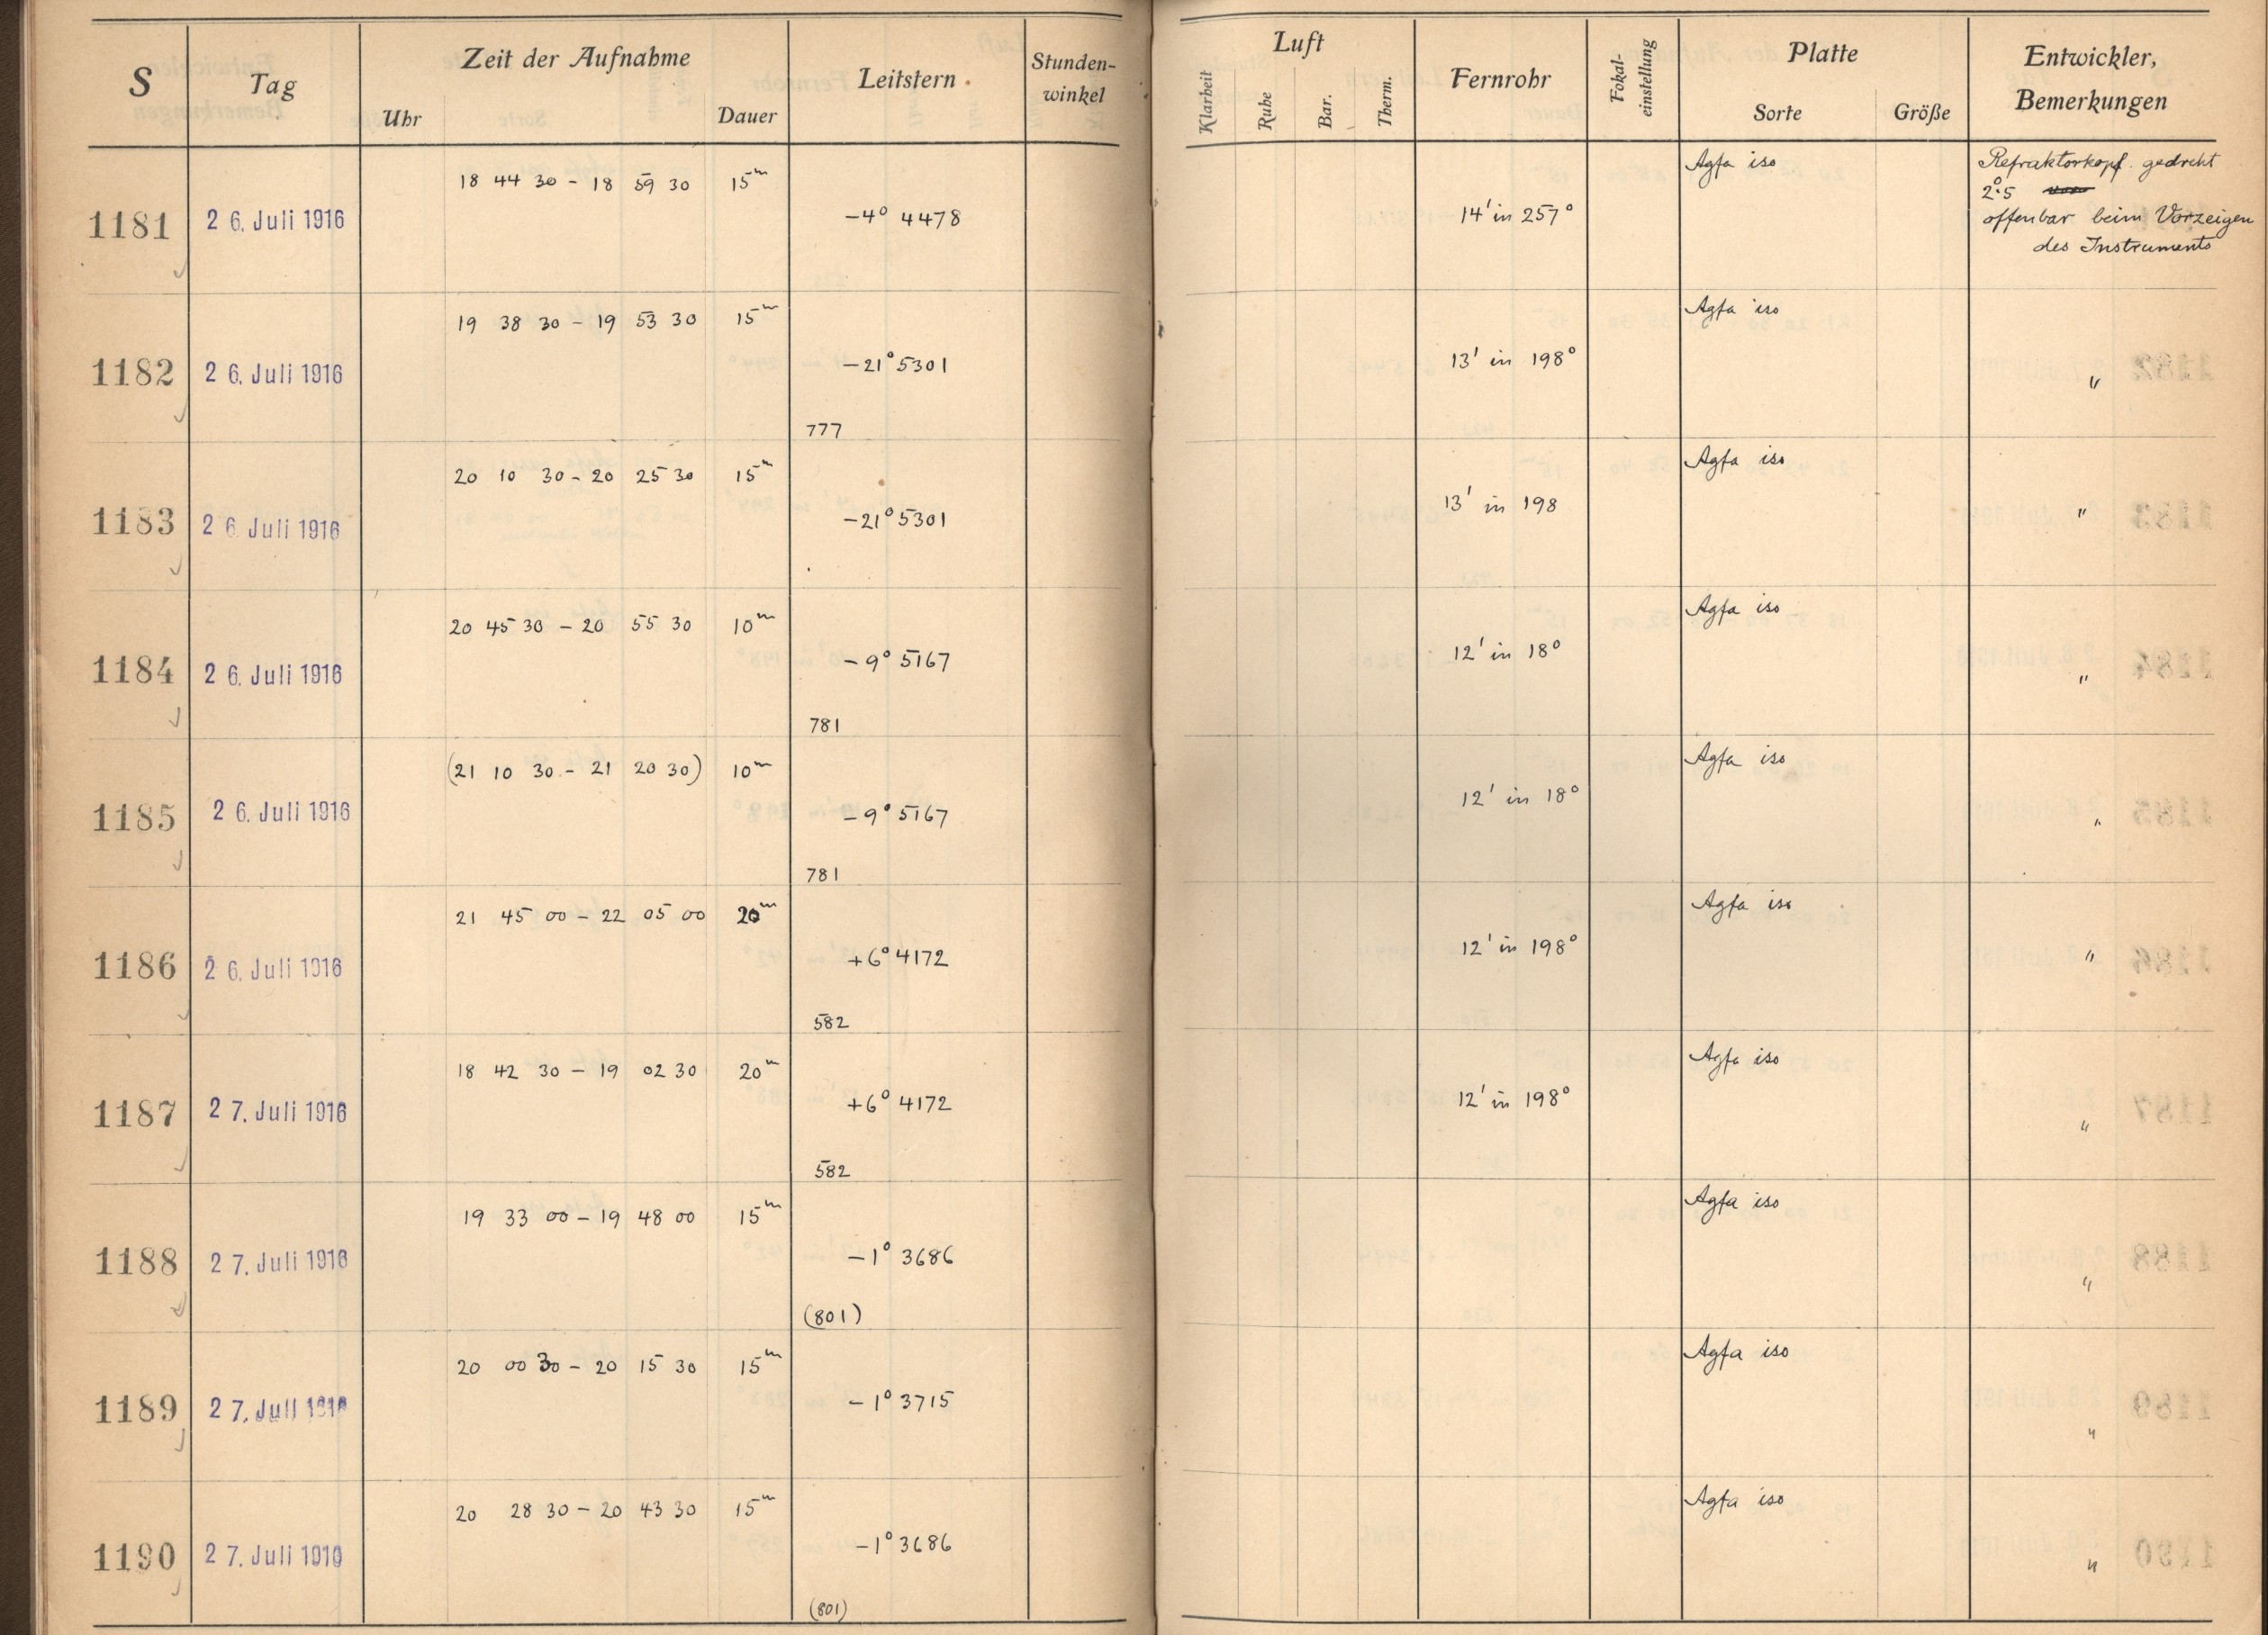 S Tag Zeit der Aufnahme Uhr Dauer Leitstern Stunden-winkel Luft Klarheit Ruhe Bar. Therm. Fernrohr Fokal-einstellung Platte Sorte Größe Entwickler, Bemerkungen
18 44 30 - 18 59 30 15m Agfa iso Refraktorkopf. gedreht
2°.5
1181 2 6. Juli 1916 -4° 4478 14' in 257° offenbar beim Vorzeigen
des Instruments
19 38 30 - 19 53 30 15m Agfa iso
1182 2 6. Juli 1916 -21° 5301 13' in 198° "
777
20 10 30 - 20 25 30 15m Agfa iso
1183 2 6. Juli 1916 -21° 5301 13' in 198 "
20 45 30 - 20 55 30 10m Agfa iso
1184 2 6. Juli 1916 -9° 5167 12' in 18° "
781
(21 10 30 - 21 20 30) 10m Agfa iso
1185 2 6. Juli 1916 -9° 5167 12' in 18° "
781
21 45 00 - 22 05 00 20m Agfa iso
1186 2 6. Juli 1916 +6° 4172 12' in 198° "
582
18 42 30 - 19 02 30 20m Agfa iso
1187 2 7. Juli 1916 +6° 4172 12' in 198° "
582
19 33 00 - 19 48 00 15m Agfa iso
1188 2 7. Juli 1916 -1° 3686 "
(801)
20 00 30 - 20 15 30 15m Agfa iso
1189 2 7. Juli 1916 -1° 3715 "
20 28 30 - 20 43 30 15m Agfa iso
1190 2 7. Juli 1916 -1° 3686 "
(801)